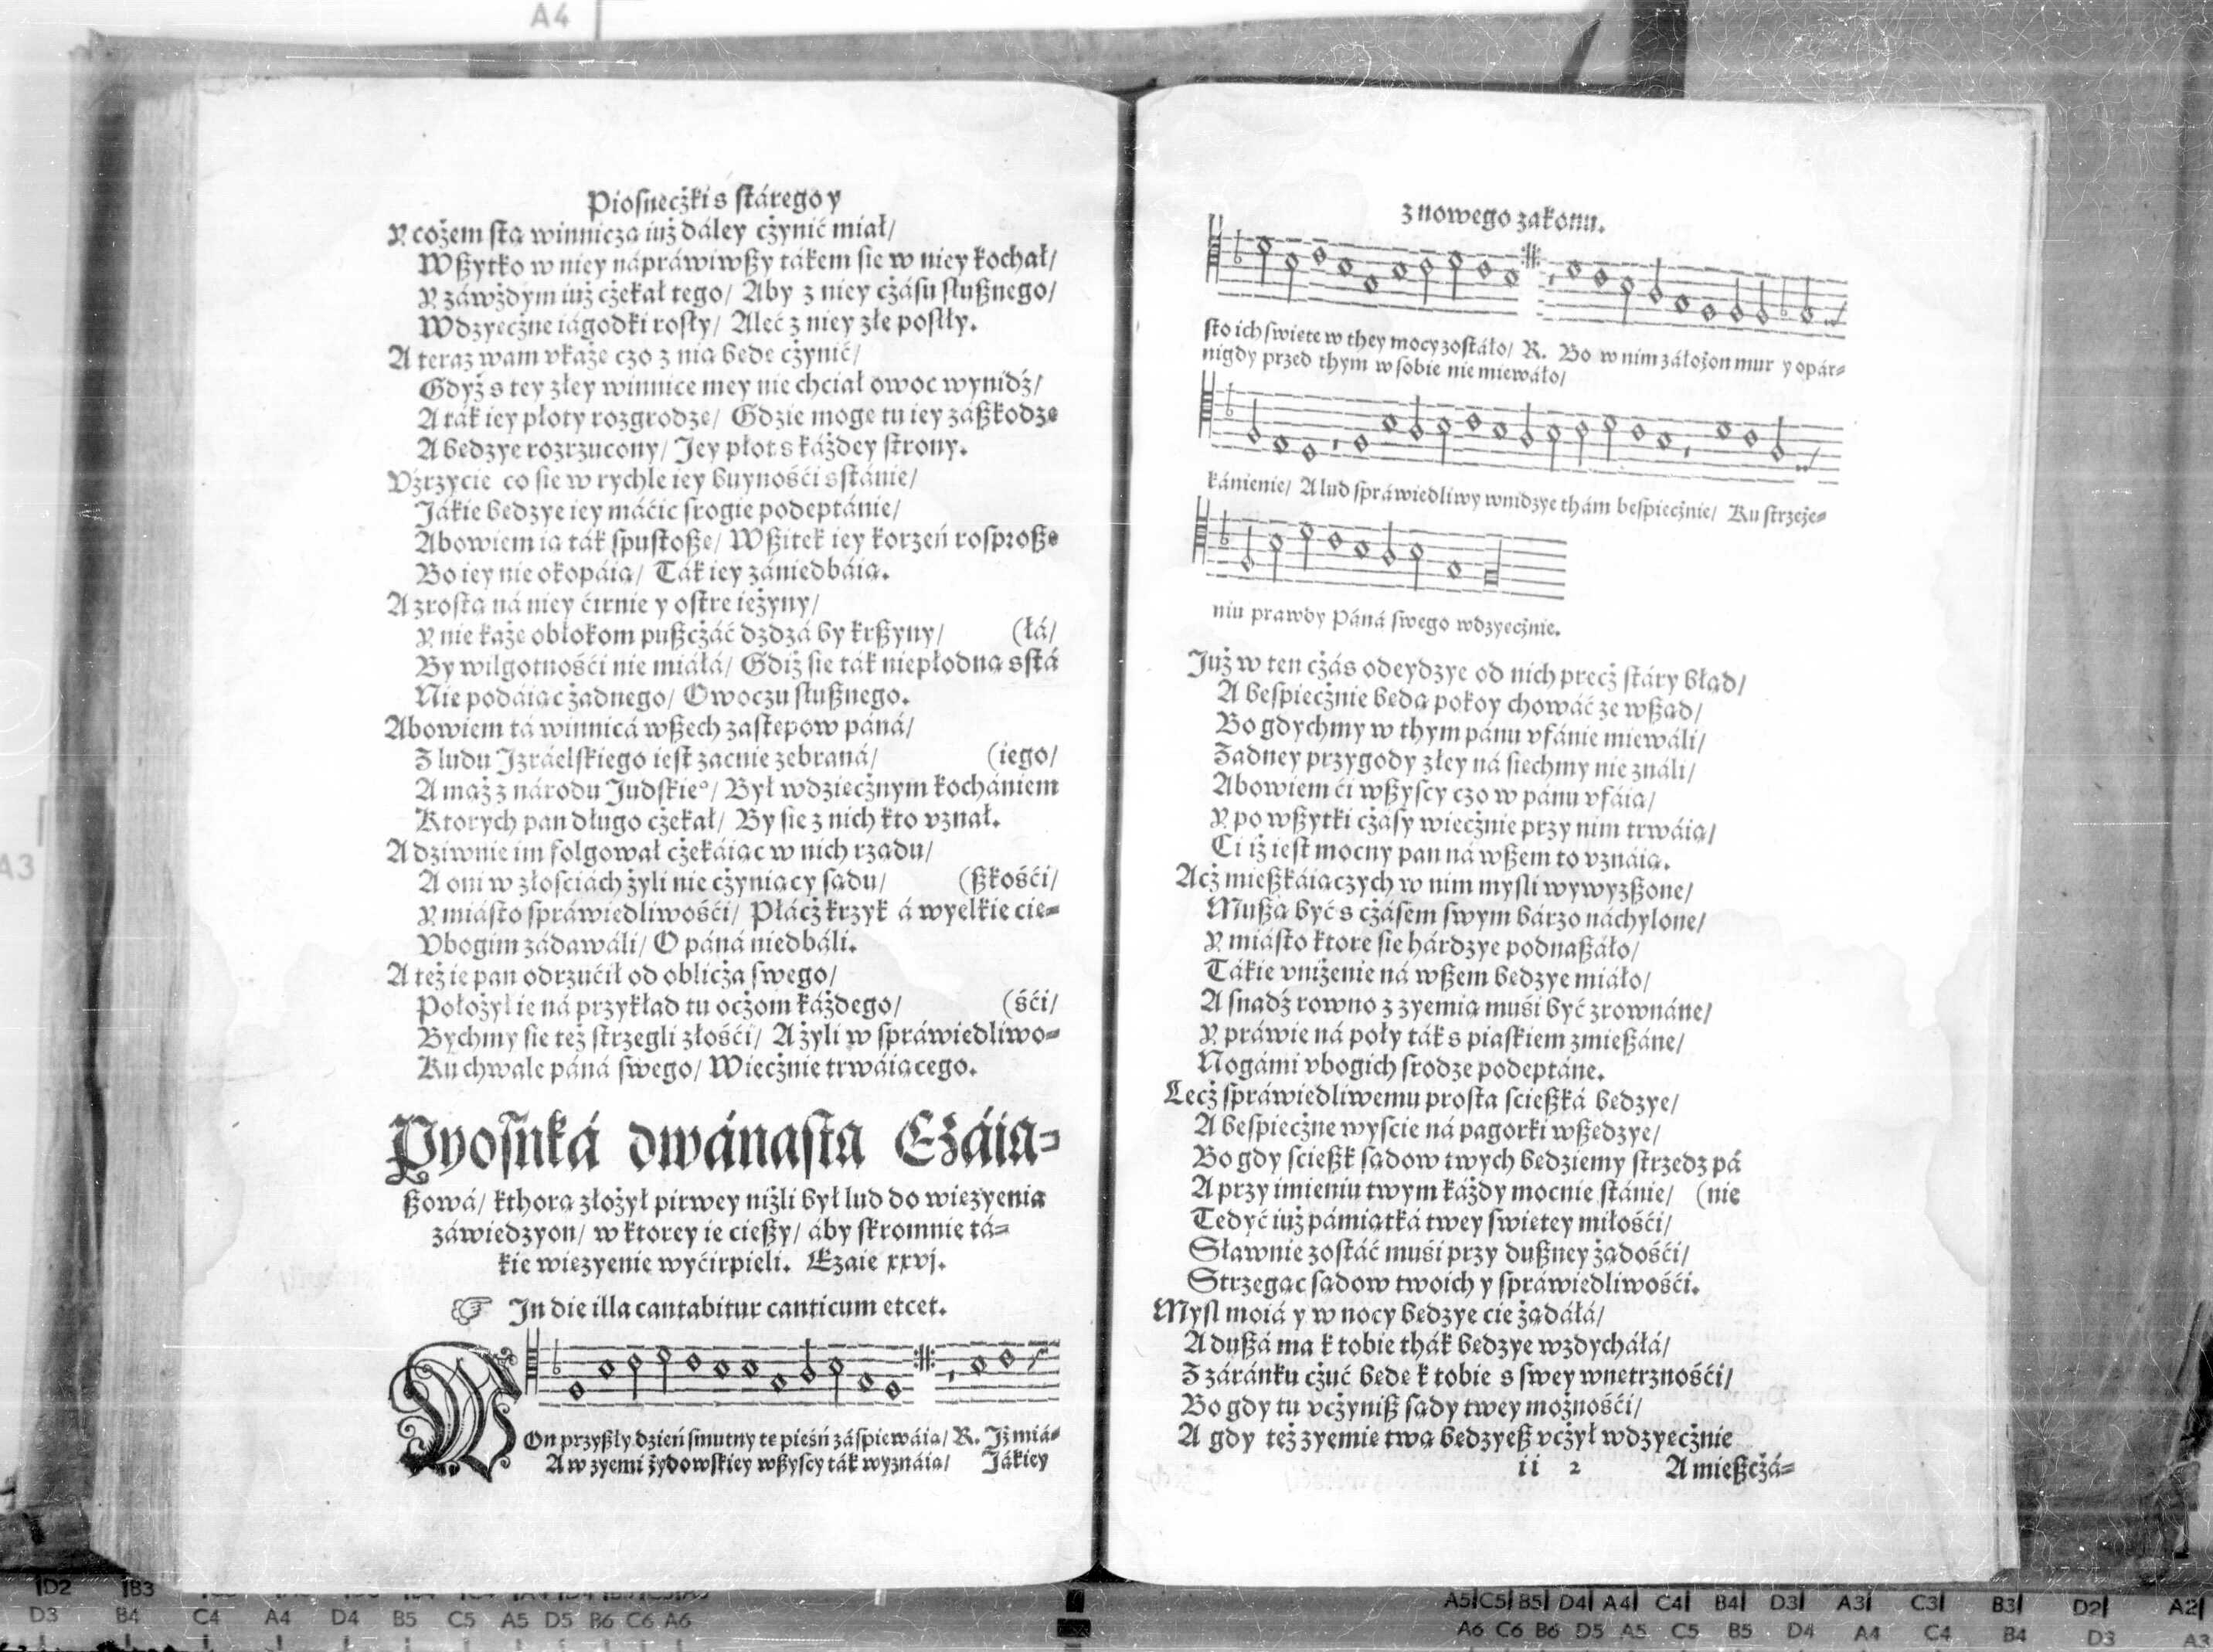 A4
Piosneczki s stárego y
Y cożem sta winnicza iuż dáley czynić miał/
Wßytko w niey nápráwiwßy tákem sie w niey kochał/
Y záwżdym iuż czekał tego/ Aby z niey czásu slußnego/
Wdzyeczne iágodki rosły/ Aleć z niey złe poslły.
A teraz wam vkaże czo z nia bede czynić/
Gdyż s tey złey winnice mey nie chciał owoc wynidź/
A ták iey płoty rozgrodze/ Gdzie moge tu iey záßkodze
A bedzye rozrzucony/ Jey płot s káżdey strony.
Vźrzycie co sie w rychle iey buynośći sstánie/
Jákie bedzye iey máćic srogie podeptánie/
Abowiem ia ták spustoße/ Wßitek iey korzeń rosproße
Bo iey nie okopáia/ Ták iey zániedbáia.
A zrosta ná niey ćirnie y ostre ieżyny/
Y nie każe obłokom pußczáć dzdzá by krßyny/ (łá/
By wilgotnośći nie miáłá/ Gdiż sie ták niepłodna sstá
Nie podáiac żadnego/ Owoczu slußnego.
Abowiem tá winnicá wßech zastepow páná/
Z ludu Jzráelskiego iest zacnie zebraná/ (iego/
A maż z národu Judskie°/ Był wdziecznym kochániem
Ktorych pan długo czekał/ By sie z nich kto vznał.
A dziwnie im folgował czekáiac w nich rzadu/
A oni w złosciach żyli nie czyniacy sadu/ (ßkośći/
Y miásto spráwiedliwośći/ Płácz krzyk á wyelkie cie-
Vbogim zádawáli/ O páná niedbáli.
A też ie pan odrzućił od oblicża swego/
Położył ie ná przykład tu oczom káżdego/ (śći/
Bychmy sie też strzegli złośći/ A żyli w spráwiedliwo-
Ku chwale páná swego/ Wiecznie trwáiacego.
Pyosnká dwánasta Ezáia-
ßowá/ kthora złożył pirwey niżli był lud do wiezyenia
záwiedzyon/ w ktorey ie cießy/ áby skromnie tá-
kie wiezyenie wyćirpieli. Ezaie xxvj.
☞ In die illa cantabitur canticum etcet.
WOn przyßły dzień smutny te pieśń záspiewáia/ R. Jż miá-
A w zyemi żydowskiey wßyscy ták wyznáia/ Jákiey
z nowego zakonu.
sto ich swiete w they mocy zostáło/ R. Bo w nim záłożon mur y opár-
nigdy przed thym w sobie nie miewáło/
kánienie/ A lud spráwiedliwy wnidzye thám bespiecznie/ Ku strzeże-
niu prawdy Páná swego wdzyecznie.
Już w ten czás odeydzye od nich precz stáry bład/
A bespiecznie beda pokoy chowáć ze wßad/
Bo gdychmy w thym pánu vfánie miewáli/
Żadney przygody złey ná siechmy nie ználi/
Abowiem ći wßyscy czo w pánu vfáia/
Y po wßytki czásy wiecznie przy nim trwáia/
Ci iż iest mocny pan ná wßem to vznáia.
Acz mießkáiaczych w nim mysli wywyzßone/
Mußa być s czásem swym bárzo náchylone/
Y miásto ktore sie hárdzye podnaßáło/
Tákie vniżenie ná wßem bedzye miáło/
A snadź rowno z zyemia muśi być zrownáne/
Y práwie ná poły ták s piaskiem zmießáne/
Nogámi vbogich srodze podeptáne.
Lecz spráwiedliwemu prosta scießká bedzye/
A bespieczne wyscie ná pagorki wßedzye/
Bo gdy scießk sadow twych bedziemy strzedz pá
A przy imieniu twym káżdy mocnie stánie/ (nie
Tedyć iuż pámiatká twey swietey miłośći/
Sławnie zostáć muśi przy dußney żadośći/
Strzegac sadow twoich y spráwiedliwośći.
Mysl moiá y w nocy bedzye cie żadáłá/
A dußá ma k tobie thák bedzye wzdycháłá/
Z záránku czuć bede k tobie s swey wnetrznośći/
Bo gdy tu vczyniß sady twey możnośći/
A gdy też zyemie twa bedzyeß vczył wdzyecznie
ii 2 A mießczá-
A3
D2 B3
D3 B4 C4 A4 D4 B5 C5 A5 D5 B6 C6 A6
A5 C5 B5 D4 A4 C4 B4 D3 A3 C3 B3 D2 A2
A6 C6 B6 D5 A5 C5 B5 D4 A4 C4 B4 D3 A3